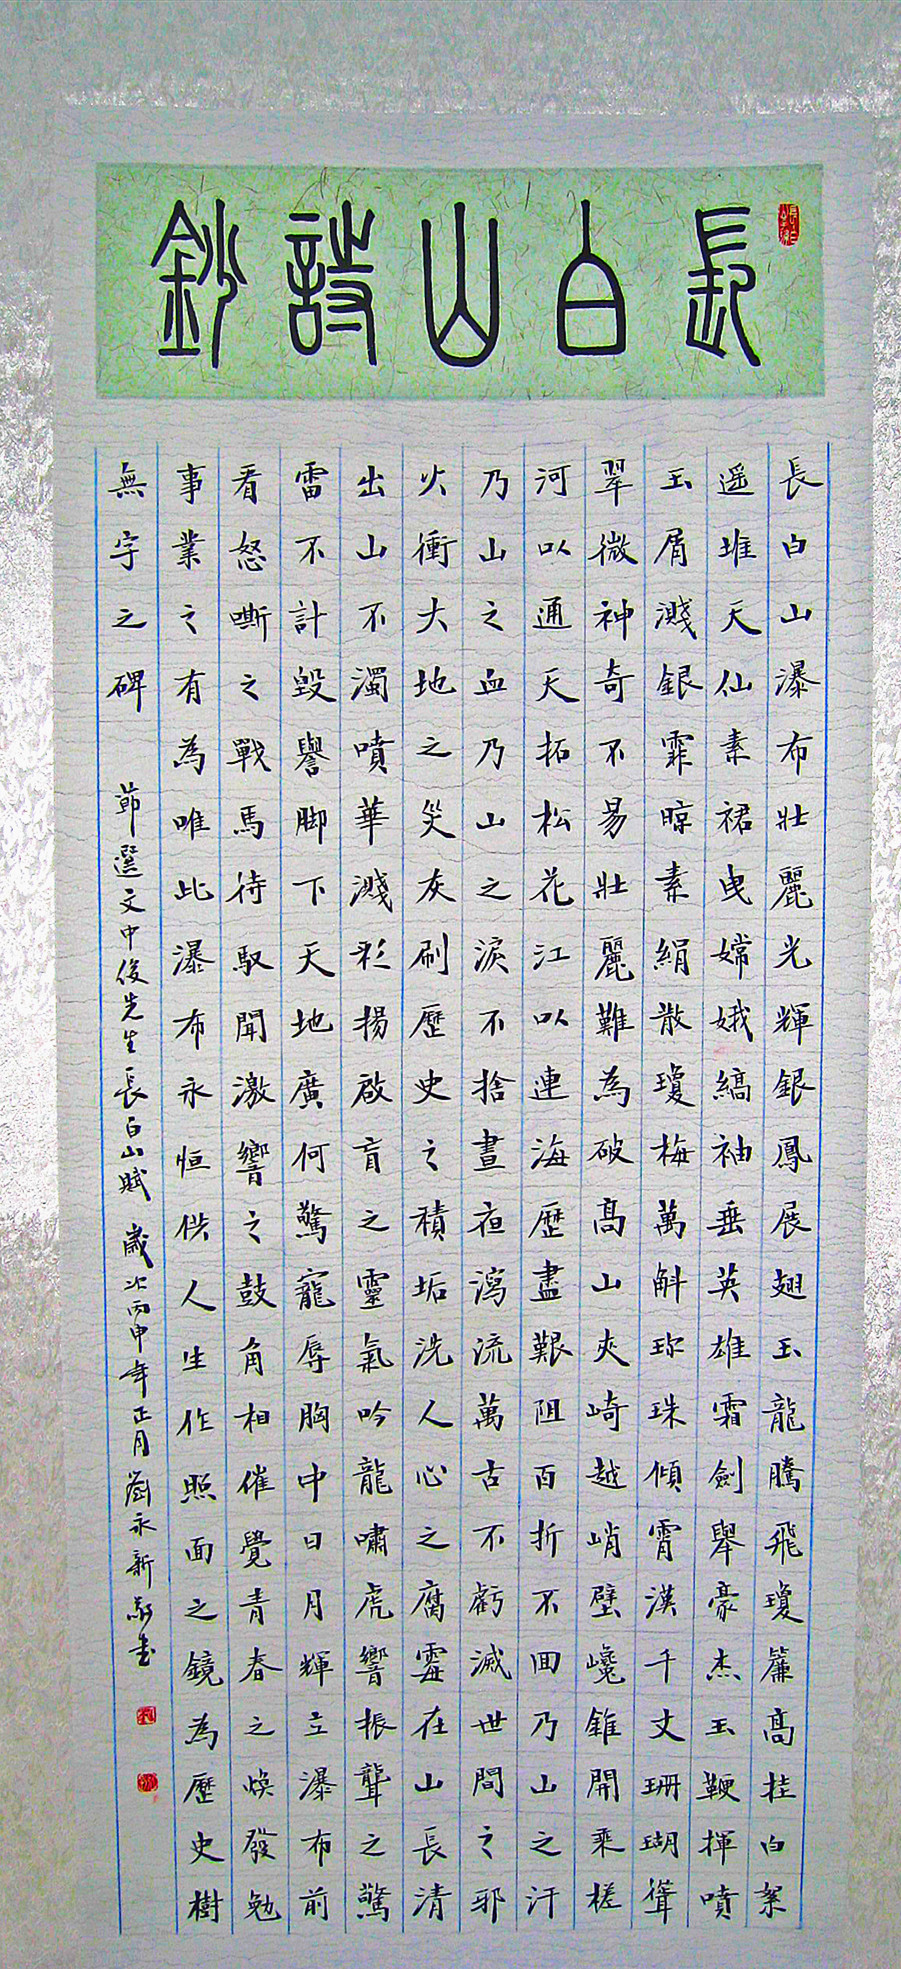 長白山詩鈔
長白山瀑布壯麗光輝銀鳳展翅玉龍騰飛瓊簾高挂白絮
遥堆天仙素裙曳嫦娥縞袖垂英雄霜劍舉豪杰玉鞭揮噴
玉屑濺銀霏晾素絹散瓊梅萬斛珍珠傾霄漢千丈珊瑚聳
翠微神奇不易壯麗難為破高山夾崎越峭壁巉錐開乘槎
河以通天拓松花江以連海歷盡艱阻百折不回乃山之汗
乃山之血乃山之淚不捨晝夜瀉流萬古不虧滅世間之邪
火衝大地之災灰刷歷史之積垢洗人心之腐霉在山長清
出山不濁噴華濺彩揚啟盲之靈氣吟龍嘯虎響振聾之驚
雷不計毀譽脚下天地廣何驚寵辱胸中日月輝立瀑布前
看怒嘶之戰馬待馭聞激響之鼓角相催覺青春之煥發勉
事業之有為唯此瀑布永恒供人生作照面之鏡為歷史樹
無字之碑 節選文中俊先生長白山賦 歲次丙申年正月劉永新敬書